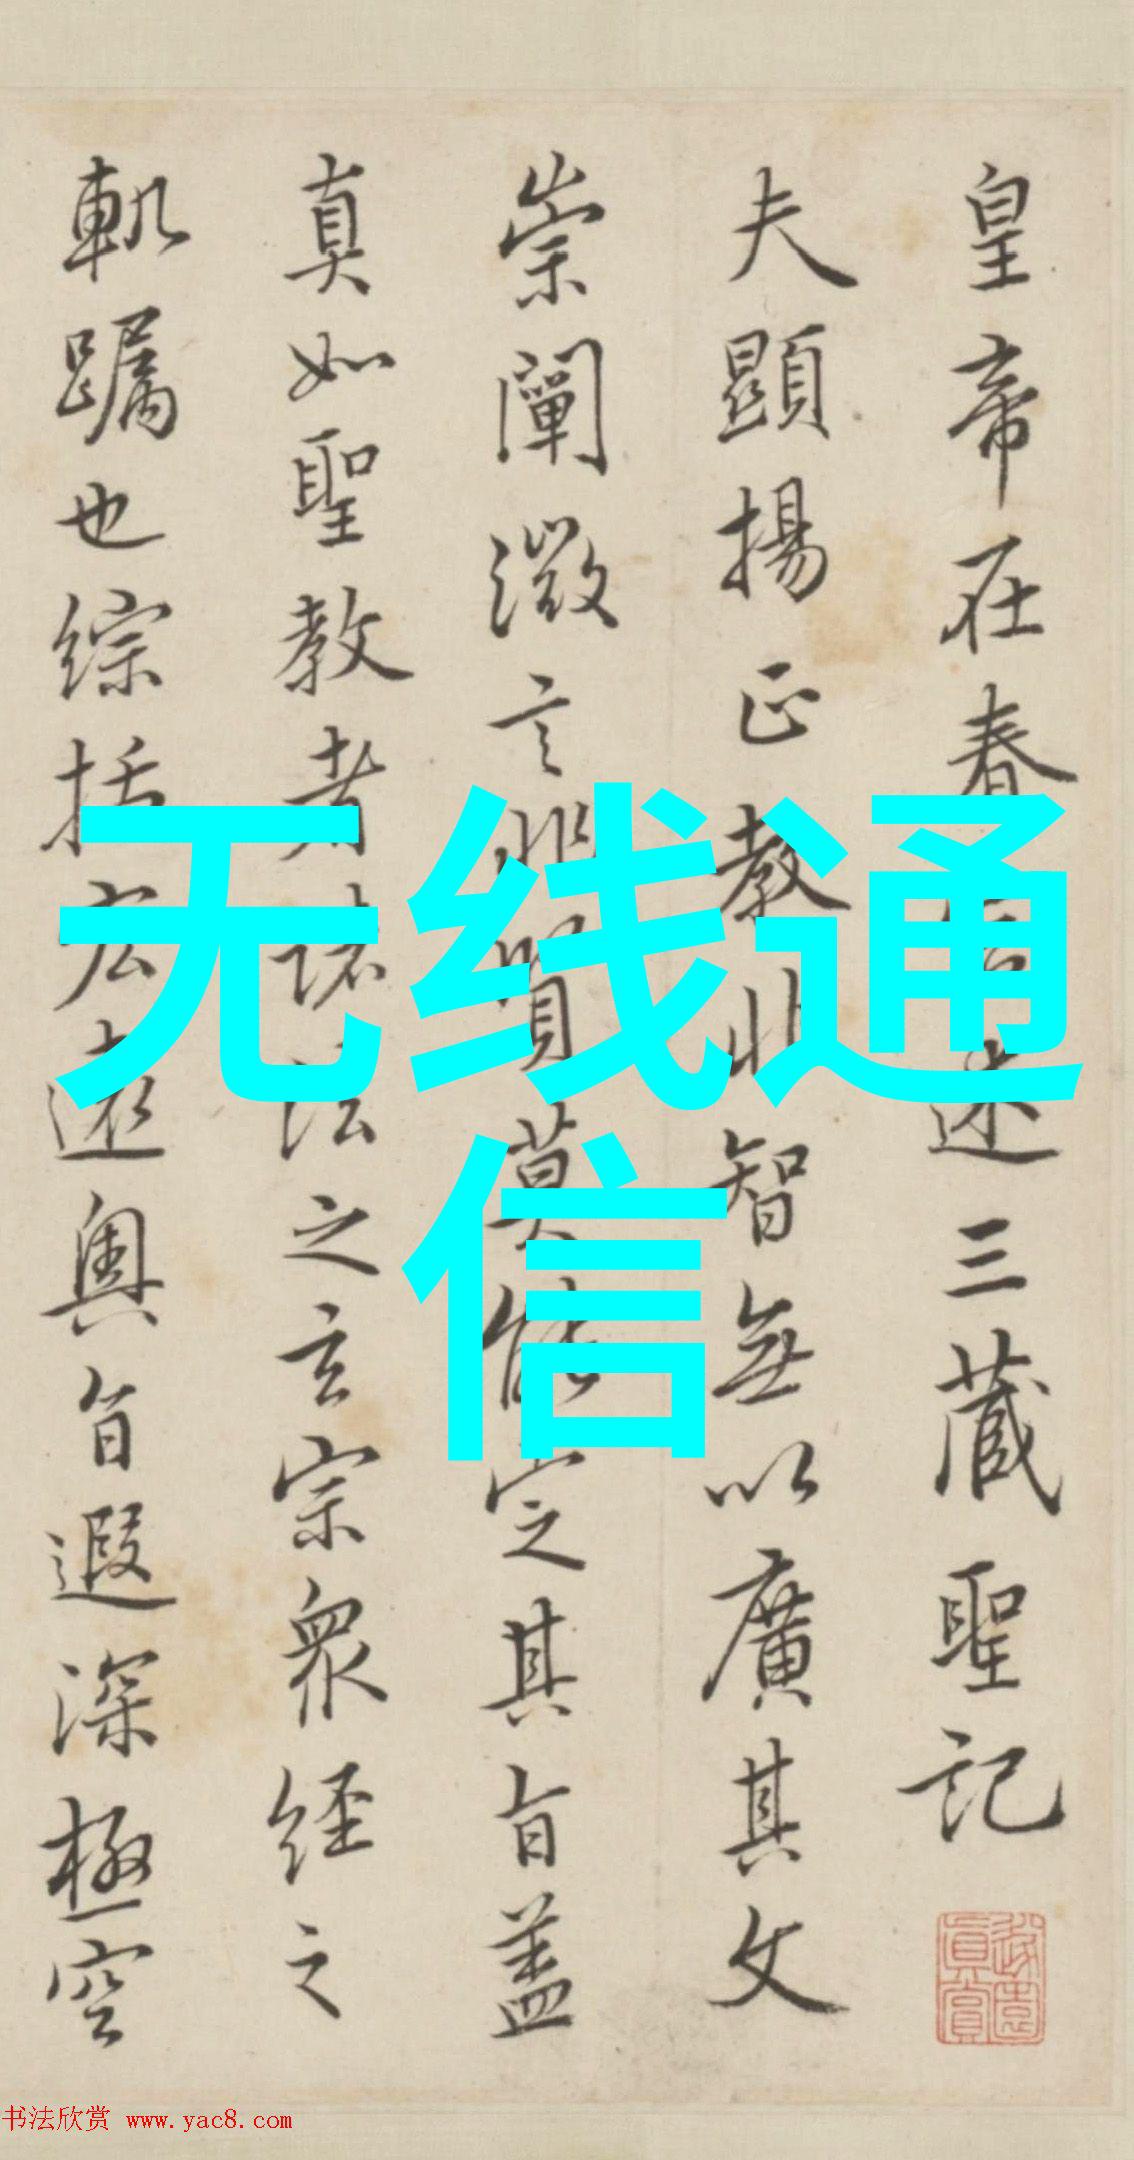 皇帝在春宮述三藏聖記
夫顯揚正教非智無以廣其文
崇闡微言非賢莫能定其旨蓋
真如聖教者諸法之玄宗衆經之
軌躅也綜括宏遠奧旨遐深極空
无线通
信
书法欣赏 www.yac8.com